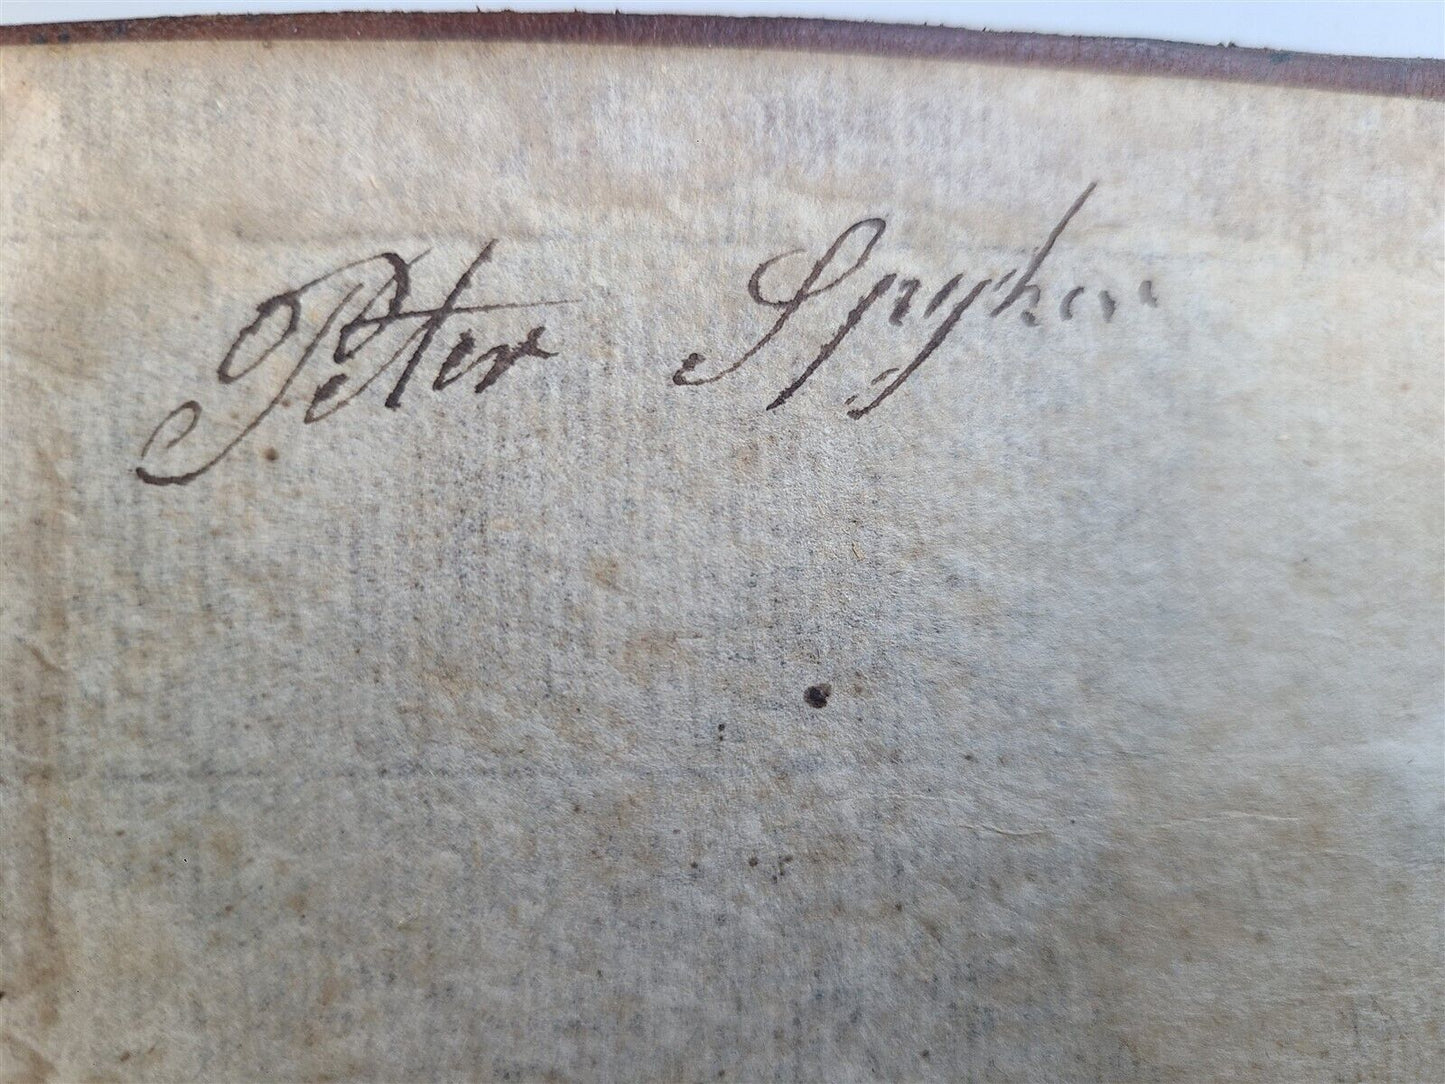 Peter Spyker